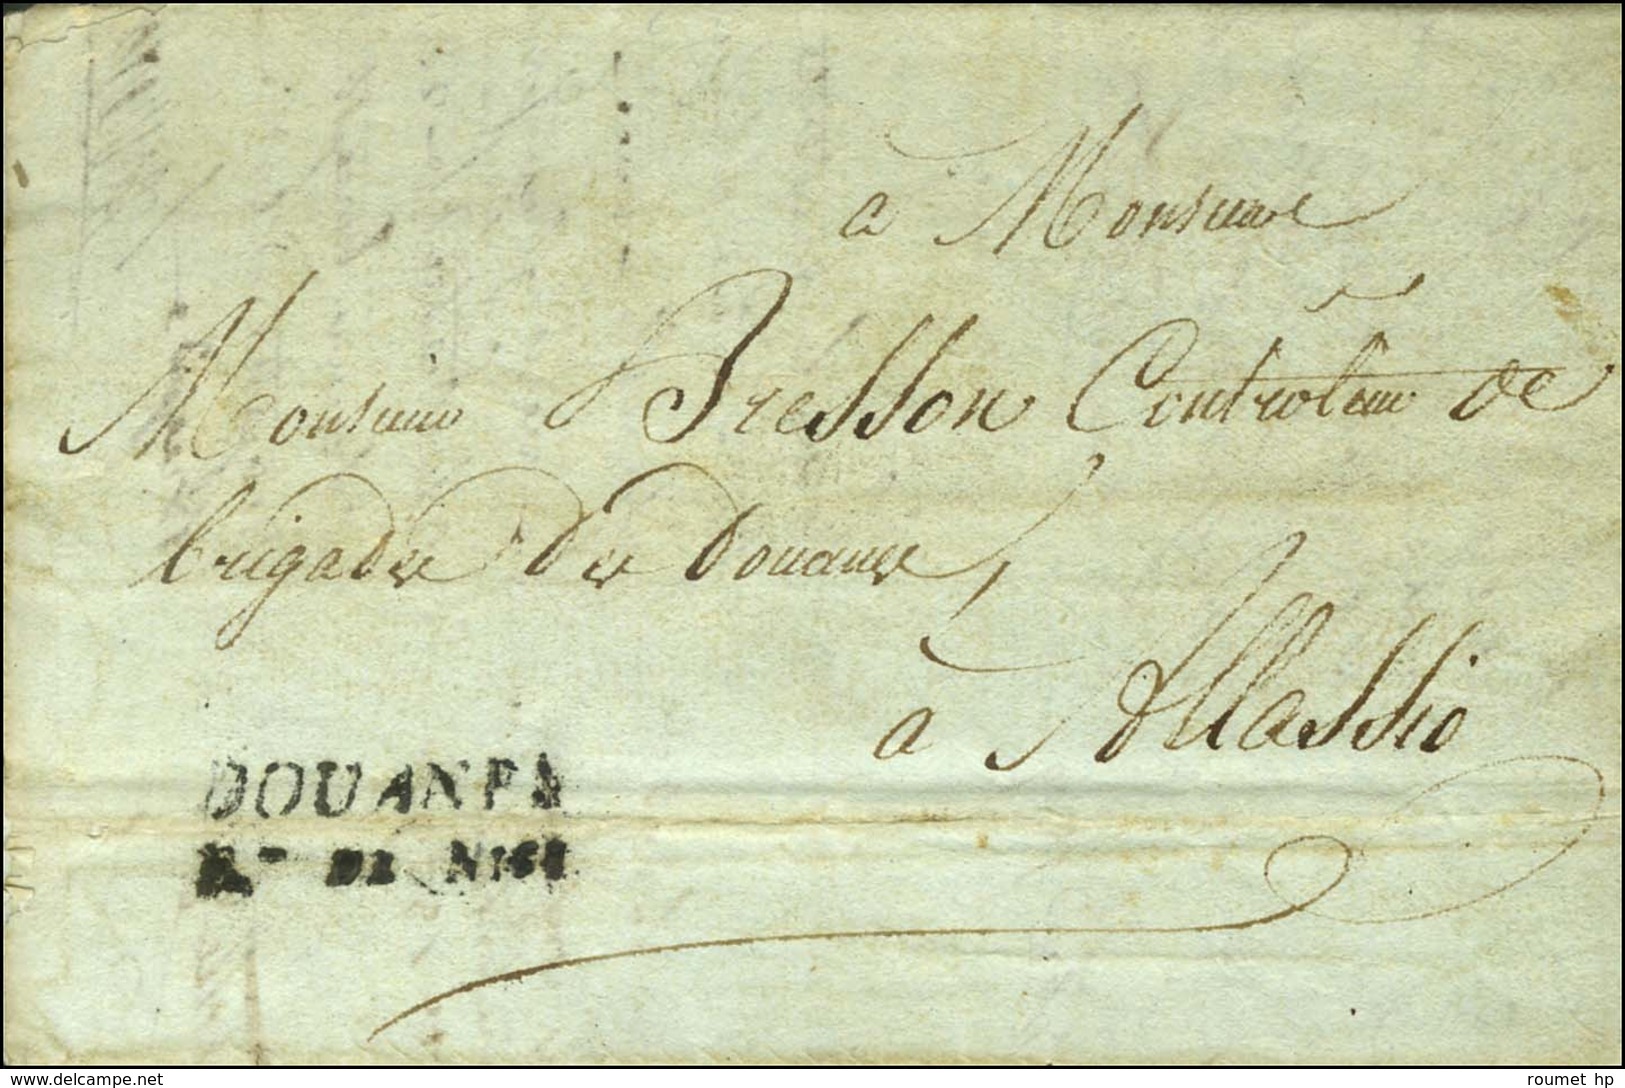 a Monsieur
Monsieur Bresson Controleur de
brigades des Douanes
à Allassio
DOUANES
Rt DE NICE
www.delcampe.net
roumet hp